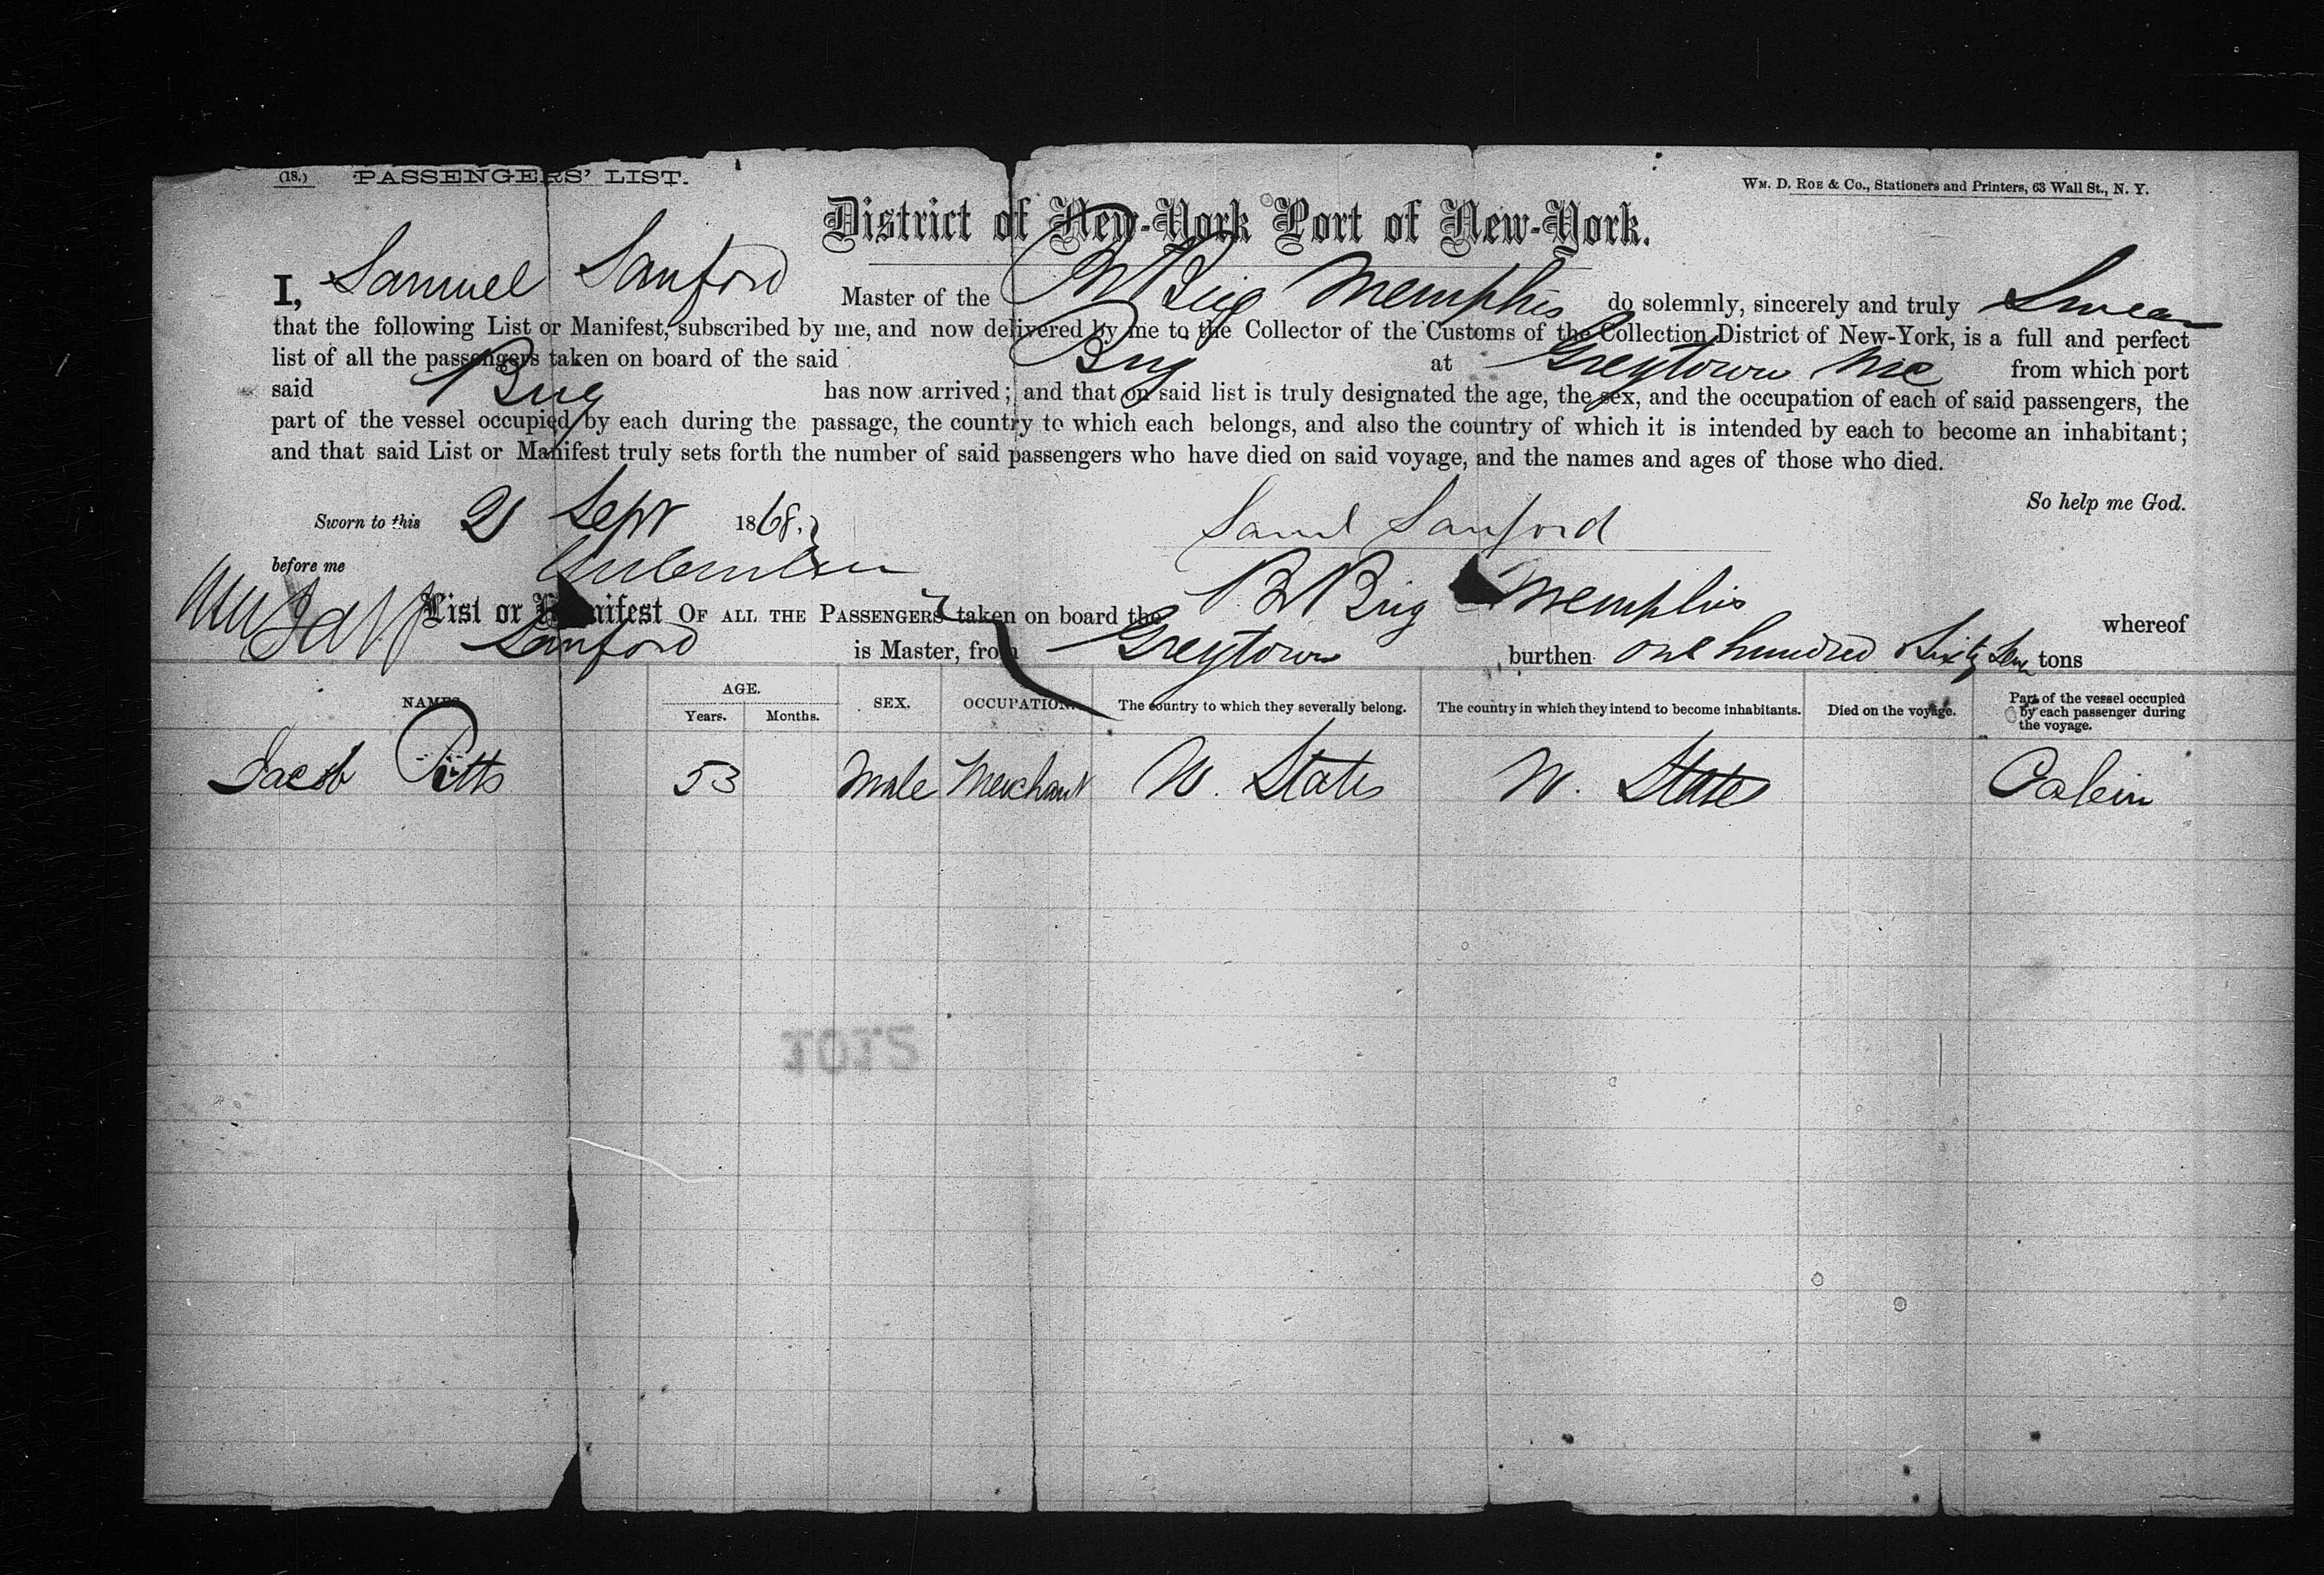 (18.) PASSENGERS' LIST.
WM. D. ROE & CO., Stationers and Printers, 63 Wall St., N. Y.
District of New-York Port of New-York.
I, Samuel Sanford Master of the Br Brig Memphis do solemnly, sincerely and truly Swear
that the following List or Manifest, subscribed by me, and now delivered by me to the Collector of the Customs of the Collection District of New-York, is a full and perfect
list of all the passengers taken on board of the said Brig at Greytown Nic from which port
said Brig has now arrived; and that on said list is truly designated the age, the sex, and the occupation of each of said passengers, the
part of the vessel occupied by each during the passage, the country to which each belongs, and also the country of which it is intended by each to become an inhabitant;
and that said List or Manifest truly sets forth the number of said passengers who have died on said voyage, and the names and ages of those who died.
So help me God.
Sworn to this 21 Sept 1868.
Saml Sanford
before me
List or Manifest OF ALL THE PASSENGERS taken on board the Br Brig Memphis whereof
Sanford is Master, from Greytown burthen one hundred Sixty tons
NAMES. AGE. Years. Months. SEX. OCCUPATION. The country to which they severally belong. The country in which they intend to become inhabitants. Died on the voyage. Part of the vessel occupied by each passenger during the voyage.
Jacob Pitts 53 Male Merchant U. States U. States Cabin